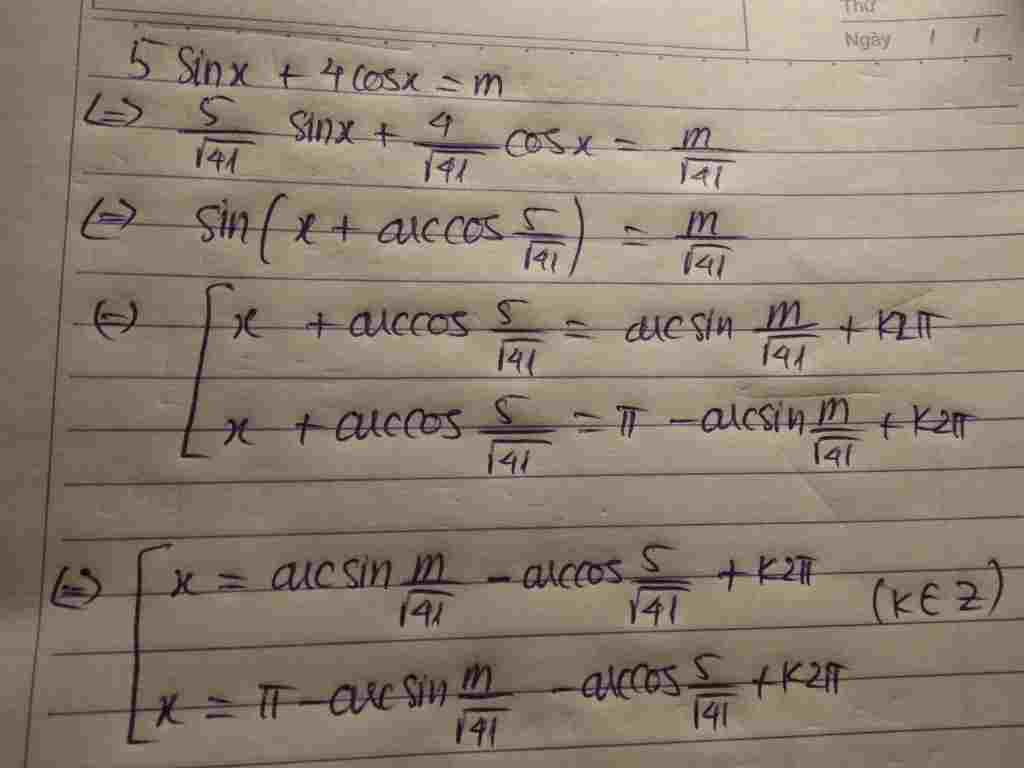 Thứ
Ngày / /
5 sinx + 4cosx = m
(=) 5/√41 sinx + 4/√41 cosx = m/√41
(=) sin(x + arccos 5/√41) = m/√41
(=) [ x + arccos 5/√41 = arcsin m/√41 + k2π
x + arccos 5/√41 = π - arcsin m/√41 + k2π
(=) [ x = arcsin m/√41 - arccos 5/√41 + k2π (k∈Z)
x = π - arcsin m/√41 - arccos 5/√41 + k2π